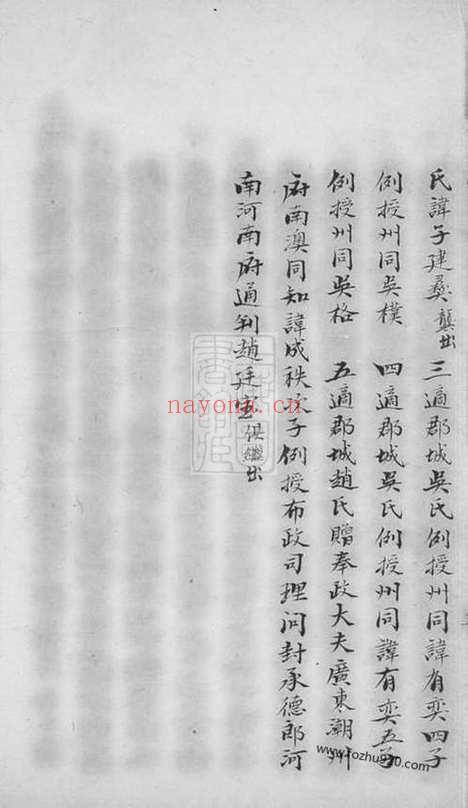 氏諱子建彞龔出 三適郡城吳氏例授州同諱有奕四子
例授州同吳樸 四適郡城吳氏例授州同諱有奕五子
例授州同吳格 五適郡城趙氏贈奉政大夫廣東潮州
府南澳同知諱成秩 子例授布政司理问封承德郎河
南河南府通判趙廷 俱繼出
nayona.cn
www.fozhu920.com